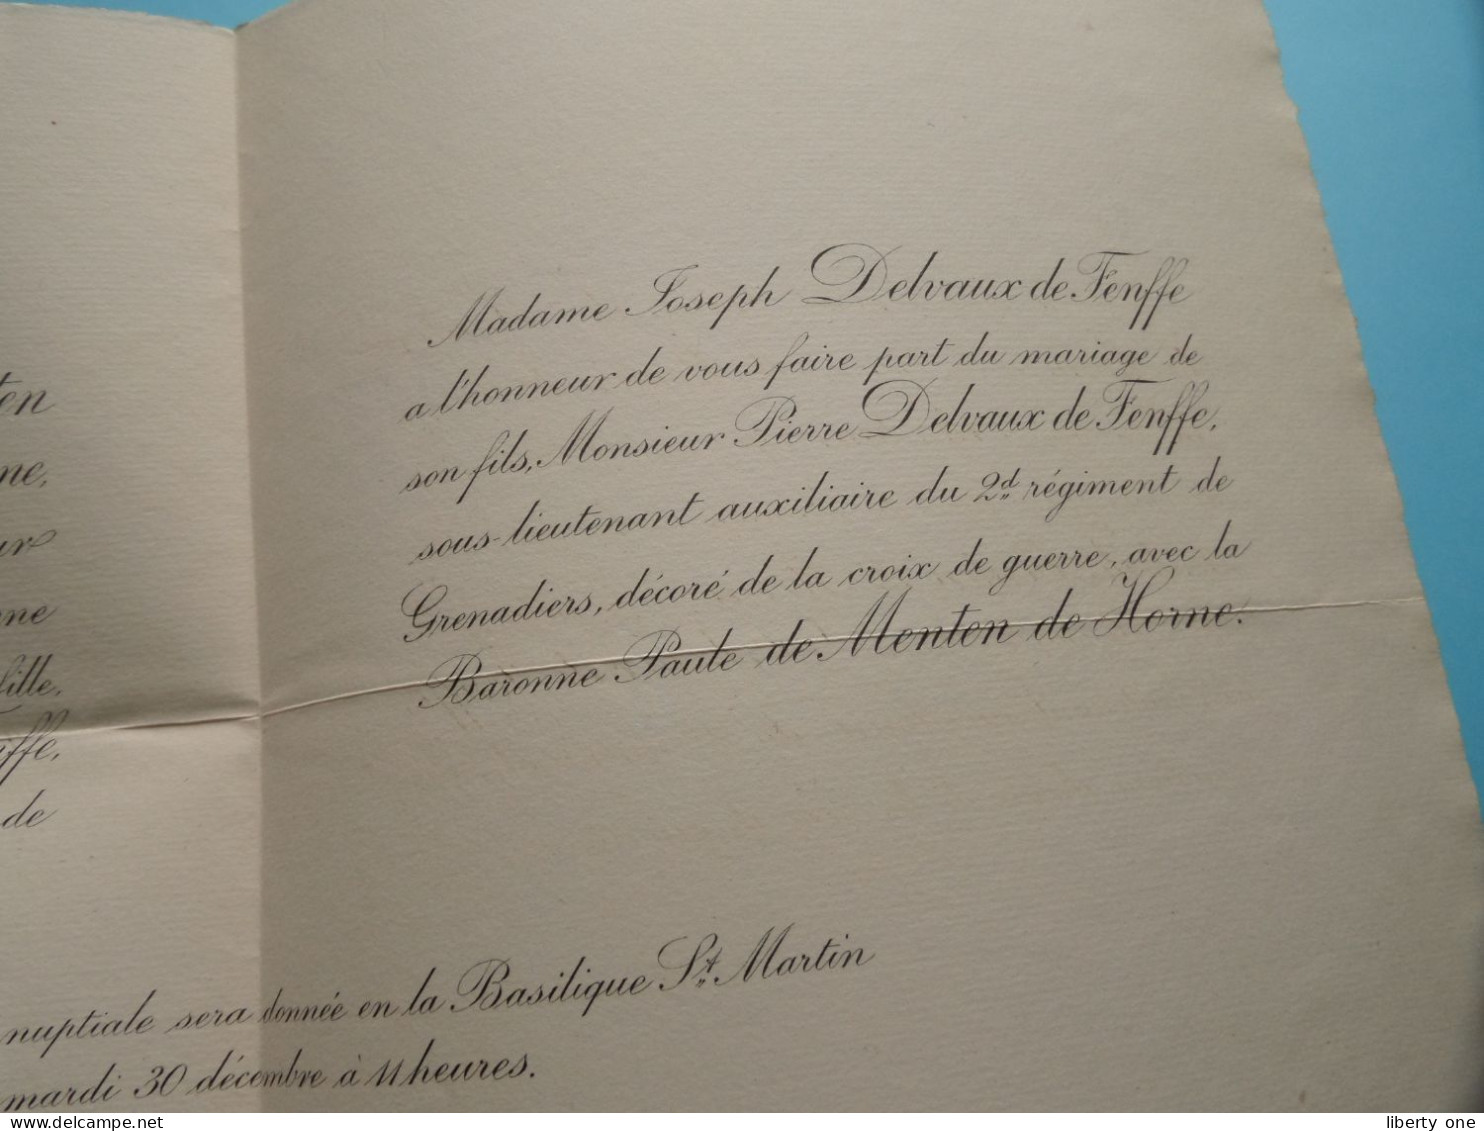 ten
ne,
ur
nne
fille,
ffe,
de
Madame Joseph Delvaux de Fenffe
a l'honneur de vous faire part du mariage de
son fils, Monsieur Pierre Delvaux de Fenffe,
sous-lieutenant auxiliaire du 2d régiment de
Grenadiers, décoré de la croix de guerre, avec la
Baronne Paule de Menten de Horne.
nuptiale sera donnée en la Basilique St Martin
mardi 30 décembre à 11 heures.
delcampe.net
liberty one